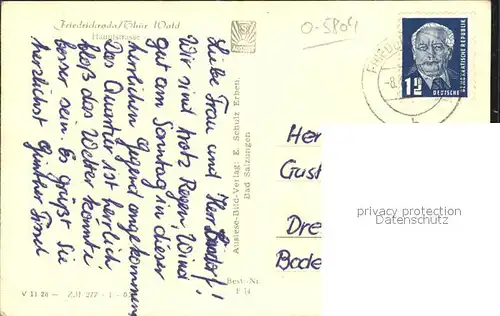 Friedrichroda/Thür Wald
Hauptstrasse
0-5804
Liebe Frau und Herr
Wir sind trotz Regen, Wind
gut am Sonntag in dieser
herrlichen Gegend angekommen.
Das Quartier ist herrlich,
bloß das Wetter könnte
besser sein. Es grüßt Sie
herzlichst Günther
Auslese-Bild-Verlag: E. Schulz Erben,
Bad Salzungen
Best.-Nr.
F 14
V 11 28
DEUTSCHE
DEMOKRATISCHE REPUBLIK
Her
Gust
Dre
Bode
privacy protection
WWW.ANSICHTSKARTEN-LEXIKON.DE